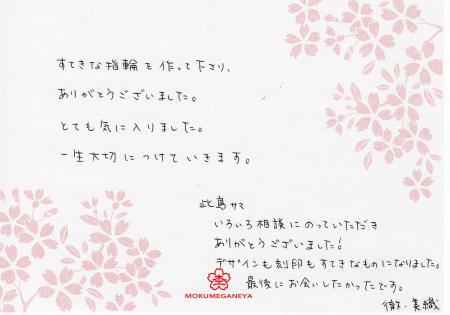 すてきな指輪を作って下さり、
ありがとうございました。
とても気に入りました。
一生大切につけていきます。
此島サマ
いろいろ相談にのっていただき
ありがとうございました!
デザインも刻印もすてきなものになりました。
最後にお会いしたかったです。
MOKUMEGANEYA
徹・美織